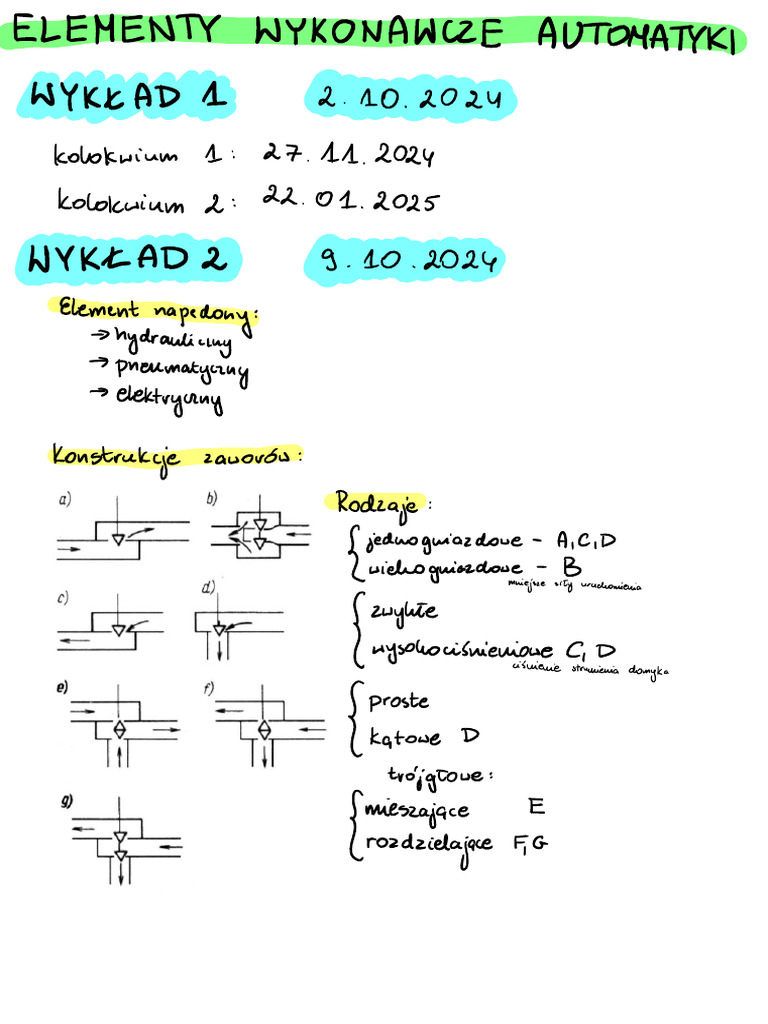 ELEMENTY WYKONAWCZE AUTOMATYKI
WYKŁAD 1 2.10.2024
kolokwium 1: 27.11.2024
kolokwium 2: 22.01.2025
WYKŁAD 2 9.10.2024
Element napędony:
→ hydrauliczny
→ pneumatyczny
→ elektryczny
Konstrukcje zaworów:
a) b)
c) d)
e) f)
g)
Rodzaje:
jednogniazdowe - A,C,D
wielogniazdowe - B
mniejsze siły uruchomienia
zwykłe
wysokociśnieniowe C, D
ciśnienie strumienia domyka
proste
kątowe D
trójgłowe:
mieszające E
rozdzielające F,G